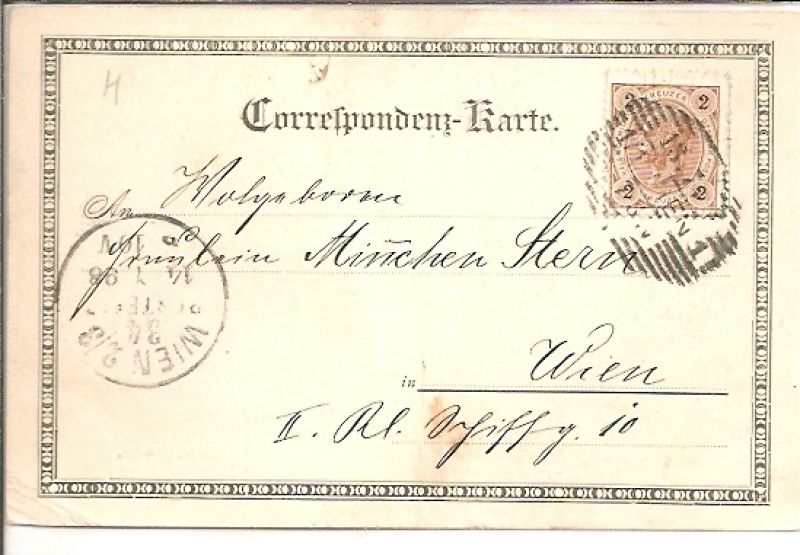 H
2 KREUZER 2
2 2
Correspondenz-Karte.
An Wolgeborne
Fräulein Minchen Stern
in Wien
II. Kl. Schiffg. 10
WIEN 2/3
34
14 7 98
10V